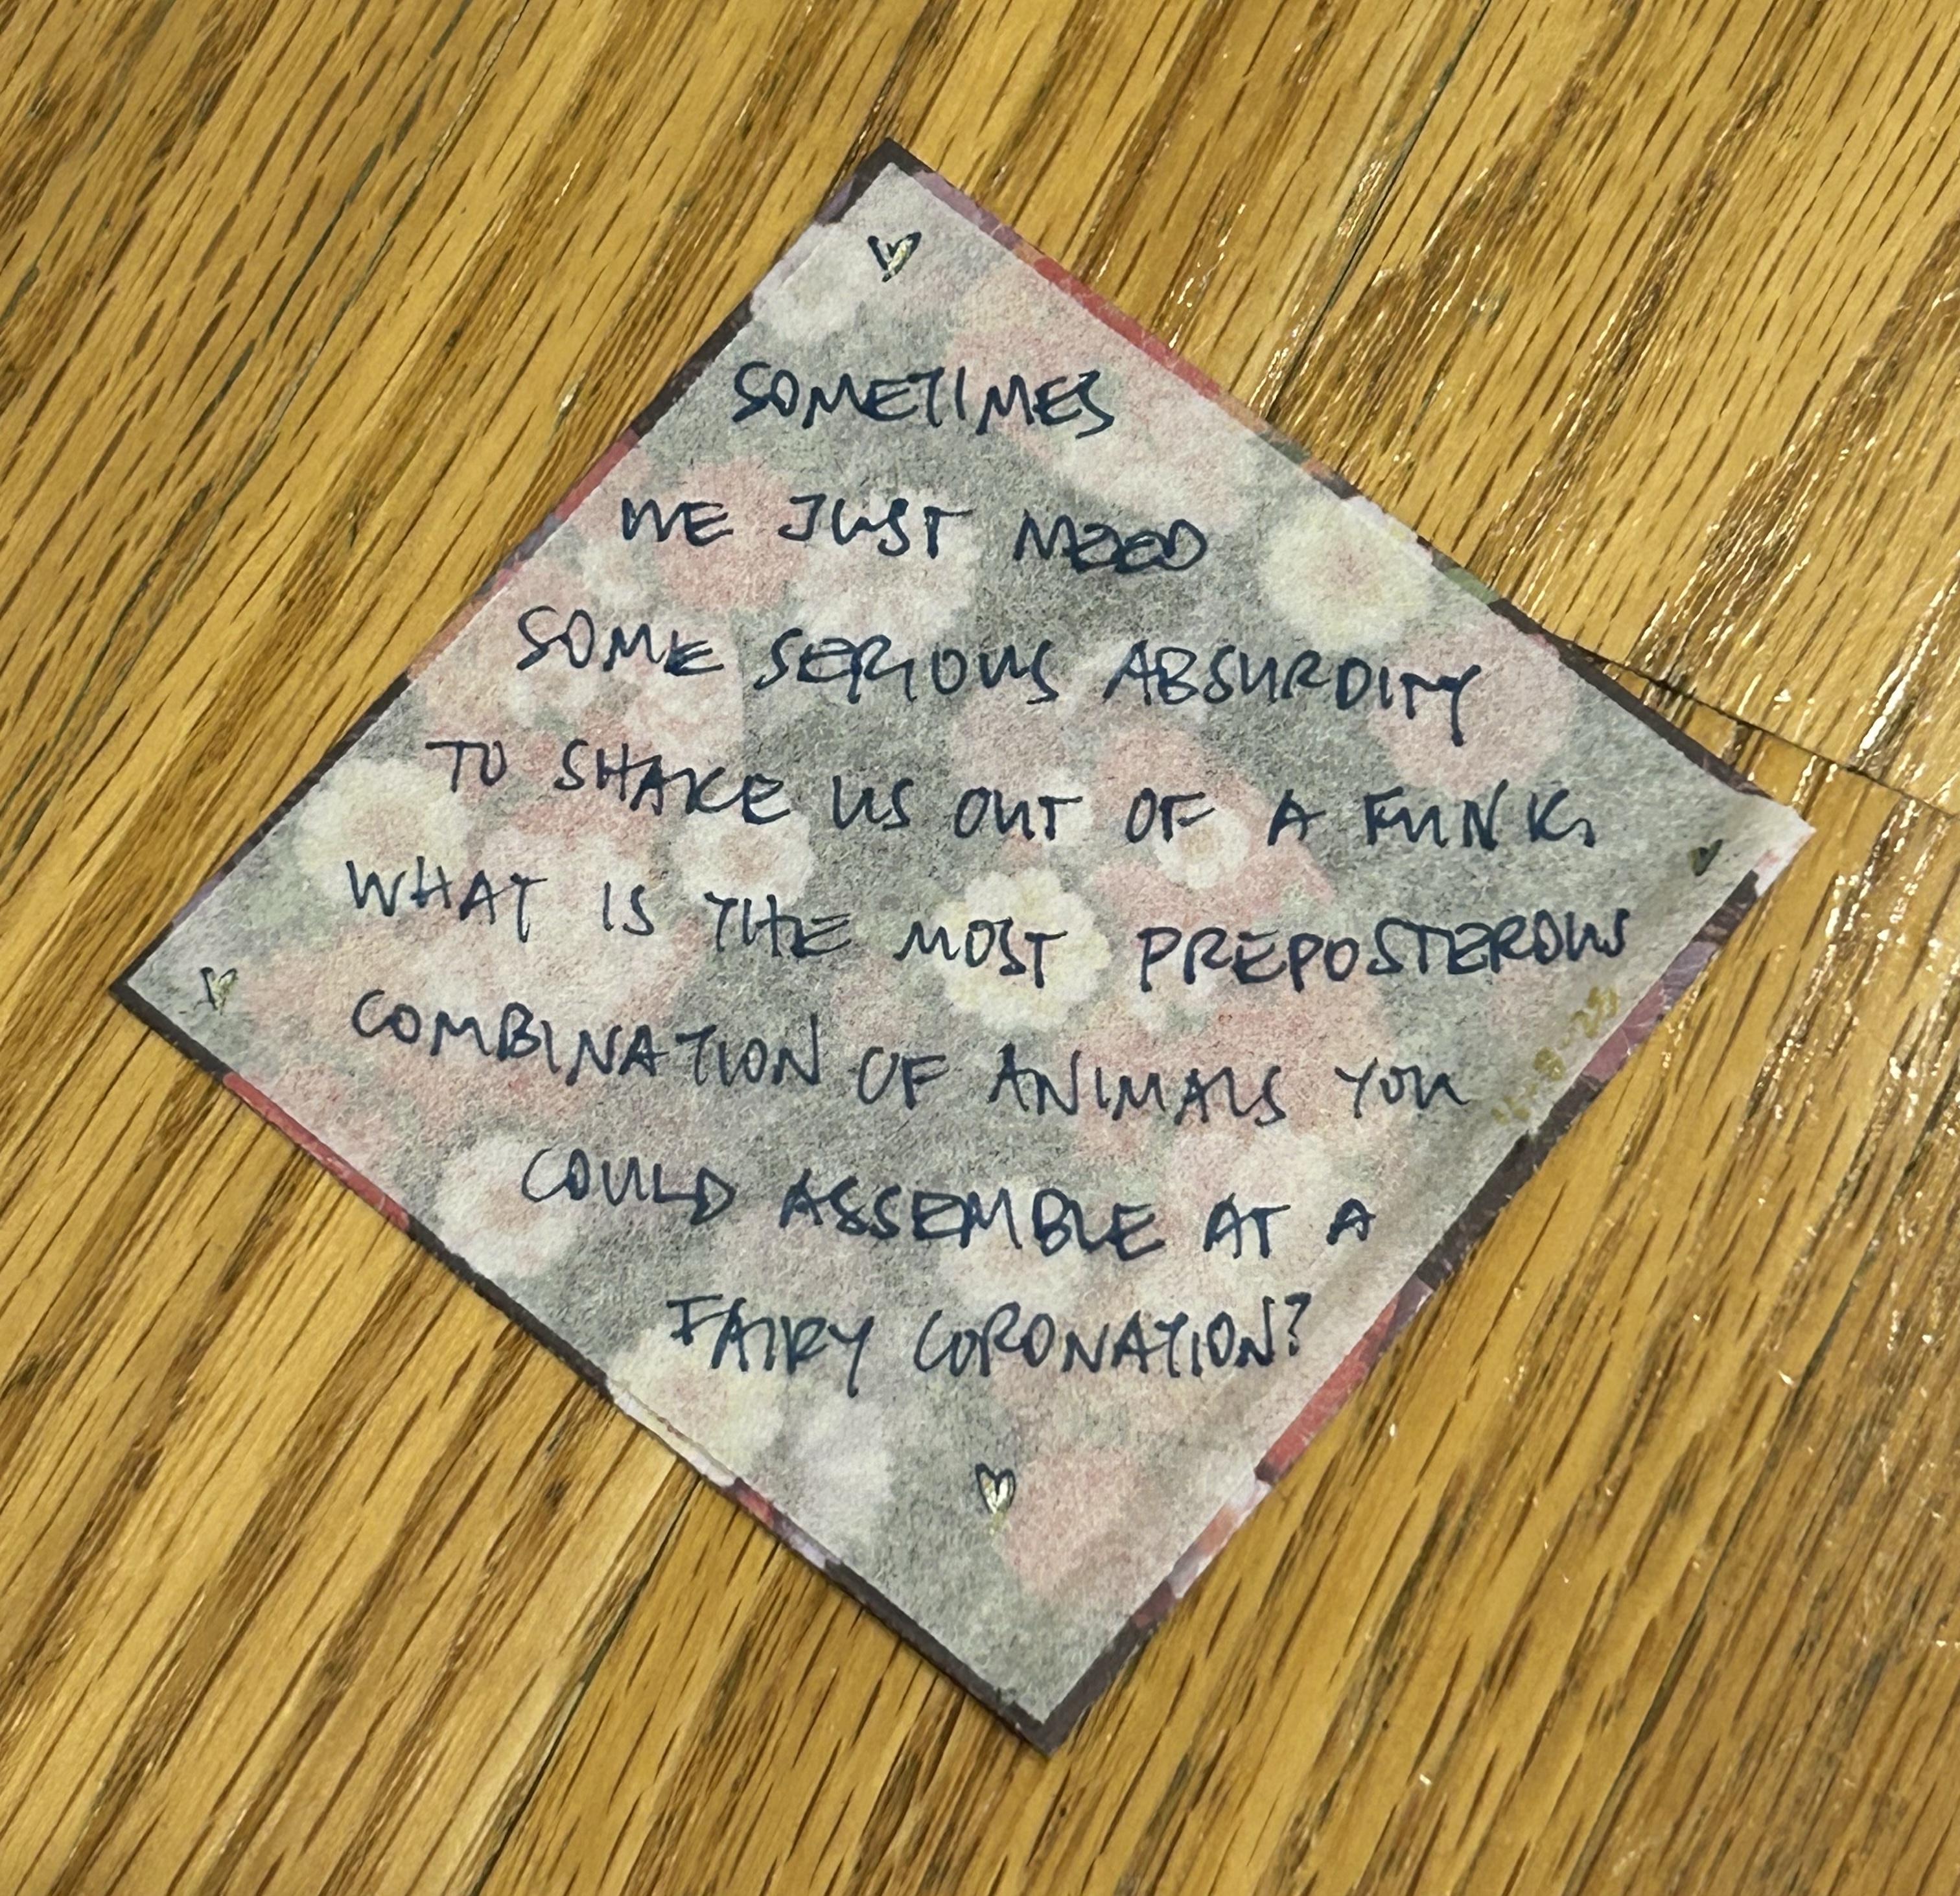 SOMETIMES
WE JUST NEED
SOME SERIOUS ABSURDITY
TO SHAKE US OUT OF A FUNK.
WHAT IS THE MOST PREPOSTEROUS
COMBINATION OF ANIMALS YOU
COULD ASSEMBLE AT A
FAIRY CORONATION?